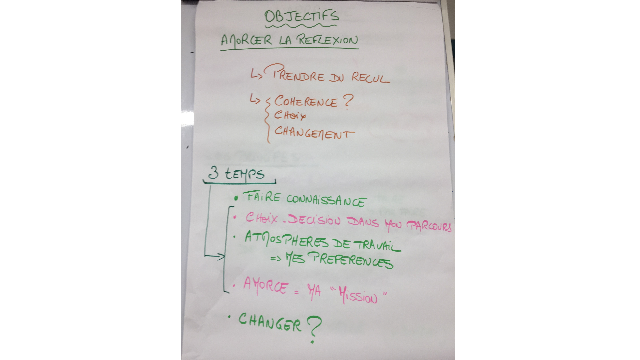 OBJECTIFS
AMORCER LA REFLEXION
↳ PRENDRE DU RECUL
↳ COHERENCE ?
CHOIX
CHANGEMENT
3 TEMPS
• FAIRE CONNAISSANCE
• CHOIX. DECISION DANS MON PARCOURS
• ATMOSPHERES DE TRAVAIL
=> MES PREFERENCES
• AMORCE = MA "MISSION"
• CHANGER ?